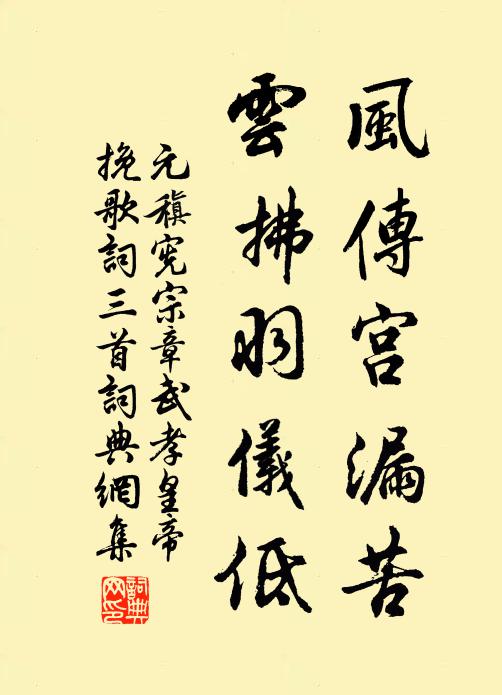 風傳宮漏苦
雲拂羽儀低
元稹憲宗章武孝皇帝
挽歌詞三首詞典網集
詞典網印